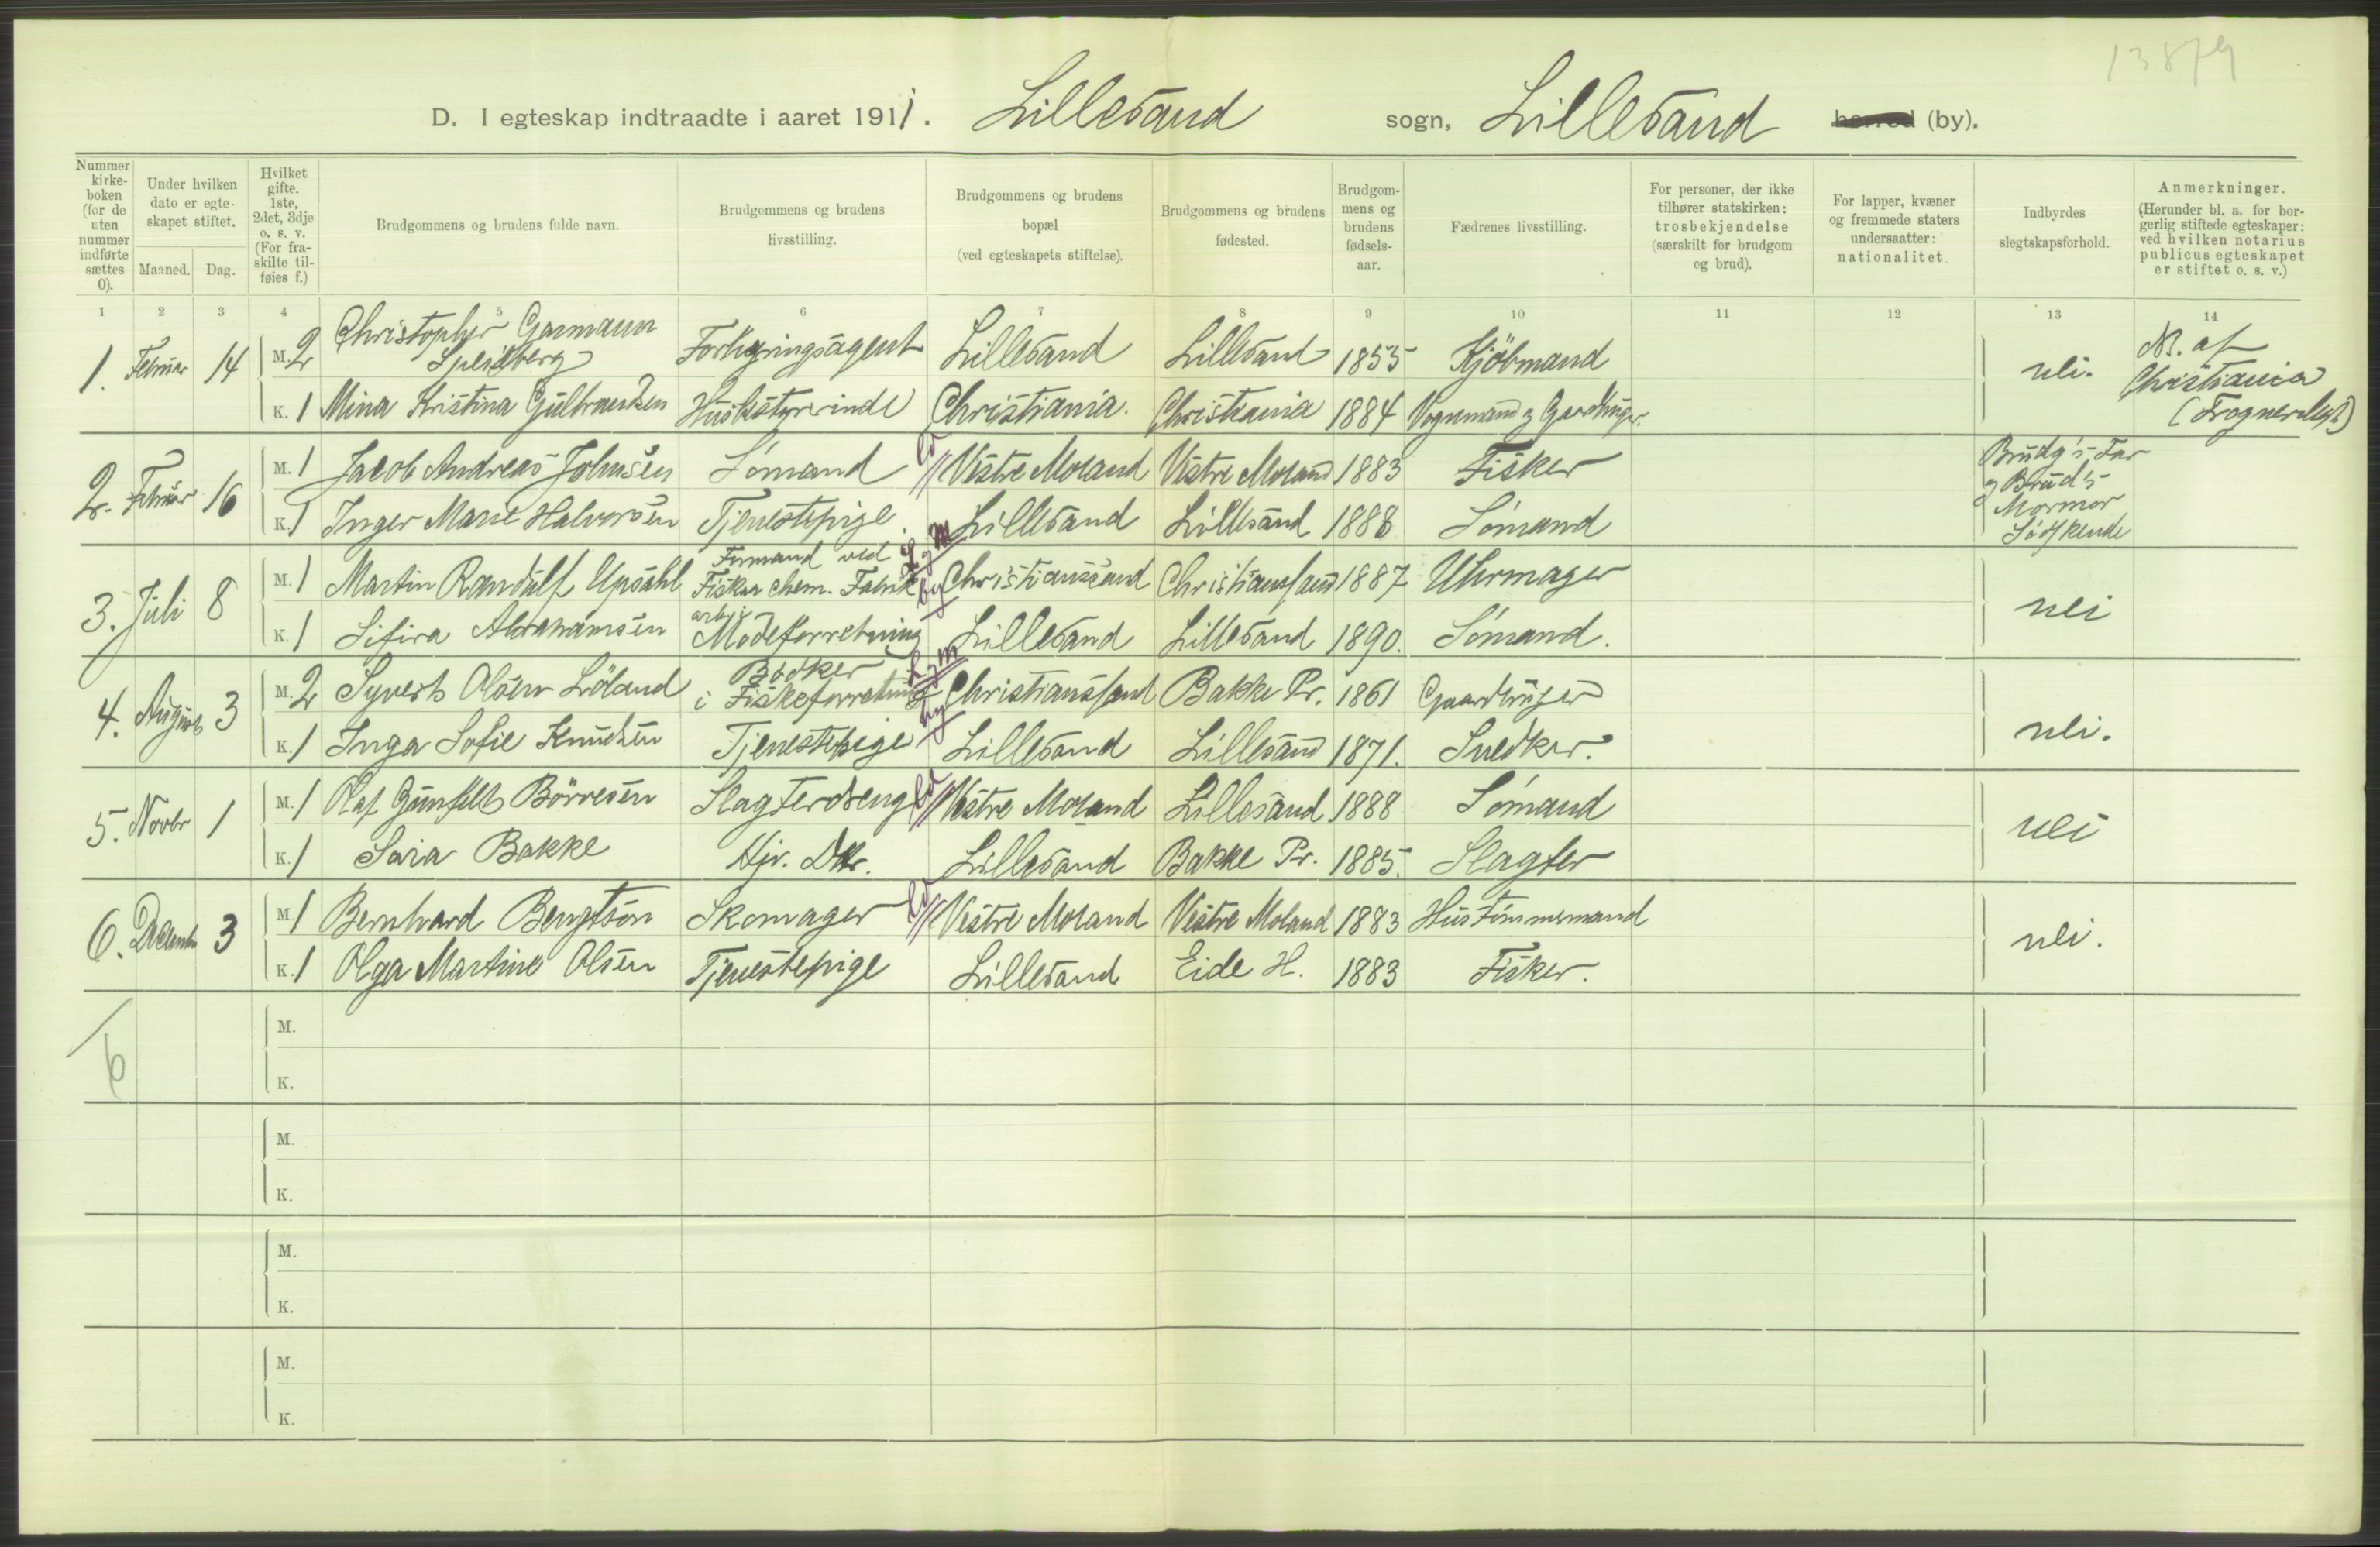 13879
D. I egteskap indtraadte i aaret 1911. Lillesand sogn, Lillesand herred (by).
Nummer kirke-boken (for de uten nummer indførte sættes 0).
Under hvilken dato er egte-skapet stiftet.
Maaned. Dag.
Hvilket gifte. 1ste, 2det, 3dje o. s. v. (For fra-skilte til-føies f.)
Brudgommens og brudens fulde navn.
Brudgommens og brudens livsstilling.
Brudgommens og brudens bopæl (ved egteskapets stiftelse).
Brudgommens og brudens fødested.
Brudgom-mens og brudens fødsels-aar.
Fædrenes livsstilling.
For personer, der ikke tilhører statskirken: trosbekjendelse (særskilt for brudgom og brud).
For lapper, kvæner og fremmede staters undersaatter: nationalitet.
Indbyrdes slegtskapsforhold.
Anmerkninger. (Herunder bl. a. for bor-gerlig stiftede egteskaper: ved hvilken notarius publicus egteskapet er stiftet o. s. v.)
1 2 3 4 5 6 7 8 9 10 11 12 13 14
1. Februar 14 M. 2 Christopher Garmann Speilberg Forsikringsagent Lillesand Lillesand 1855 Kjöbmand nei. N. af Christiania
K. 1 Mina Kristina Gulbrandsen Husbstyrerinde Christiania. Christiania 1884 Vognmand og Gaardbruger.
2. Februar 16 M. 1 Jacob Andreas Johnsen Sömand Vestre Moland Vestre Moland 1883 Fisker Brudg's Far og Brud's Mormor Södskende
K. 1 Inger Marie Halvorsen Tjenestepige. Lillesand Lillesand 1888 Sömand
3. Juli 8 M. 1 Martin Randulf Upsahl Formand ved Fiskaa chem. Fabrik Christianssand Christianssand 1887 Uhrmager nei
K. 1 Sifira Abrahamsen arb. i Modeforretning Lillesand Lillesand 1890. Sömand.
4. August 3 M. 2 Syvert Olsen Löland Bödker i Fiskeforretning Christianssand Bakke Pr. 1861 Gaardbruger nei.
K. 1 Inga Sofie Knudsen Tjenestepige Lillesand Lillesand 1871. Snedker.
5. Novbr 1 M. 1 Olaf Gunfeldt Börresen Slagterdreng Vestre Moland Lillesand 1888 Sömand nei
K. 1 Sara Bakke Hjv. Dtr. Lillesand Bakke Pr. 1885. Slagter
6. December 3 M. 1 Bernhard Bengtson Skomager Vestre Moland Vestre Moland 1883 Hustömmermand nei.
K. 1 Olga Martine Olsen Tjenestepige Lillesand Eide H. 1883 Fisker.
6
M.
K.
M.
K.
M.
K.
M.
K.